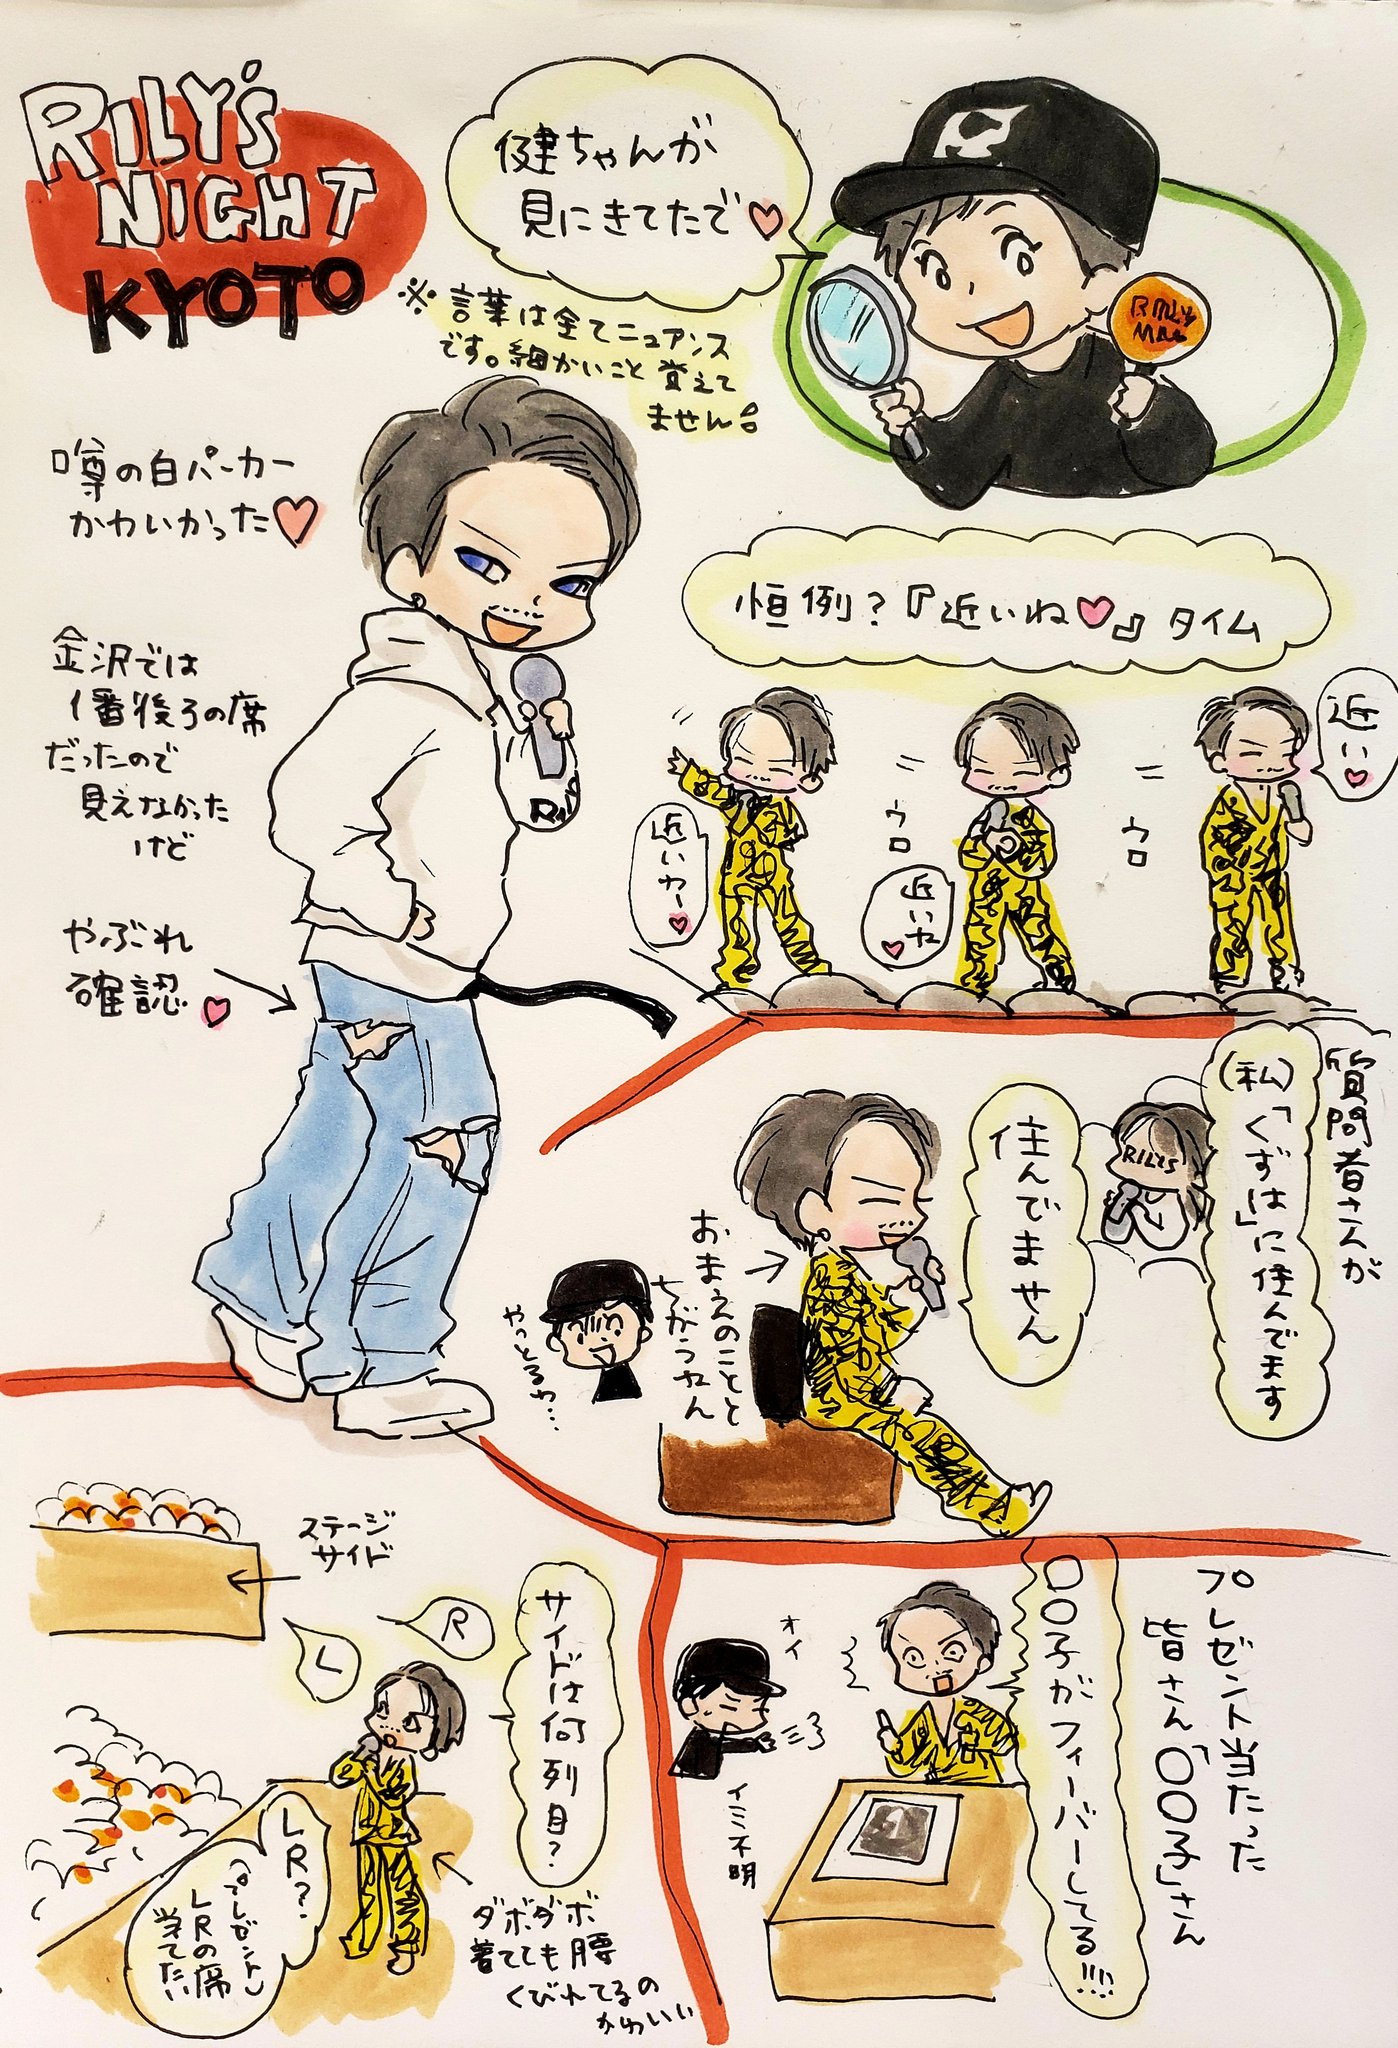 RILY'S
NIGHT
KYOTO
健ちゃんが
見にきてたで♡
※言葉は全てニュアンス
です。細かいこと覚えて
ません。
RILY'S
噂の白パーカー
かわいかった♡
金沢では
1番後ろの席
だったので
見えなかった
けど
やぶれ
確認♡
恒例?『近いね♡』タイム
近いわー♡
ウロ
近いね♡
ウロ
近い♡
質問者さんが
(私)「くずは」に住んでます
RILYS
住んでません
おまえのことと
ちがうねん
やっとるわ…
ステージ
サイド
L
R
サイドは何列目?
LR?
(プレゼント)
LRの席
当てたい
ダボダボ
着てても腰
くびれてるの
かわいい
プレゼント当たった
皆さん「〇〇子」さん
〇〇子がフィーバーしてる!!!!
オイ
イミ不明